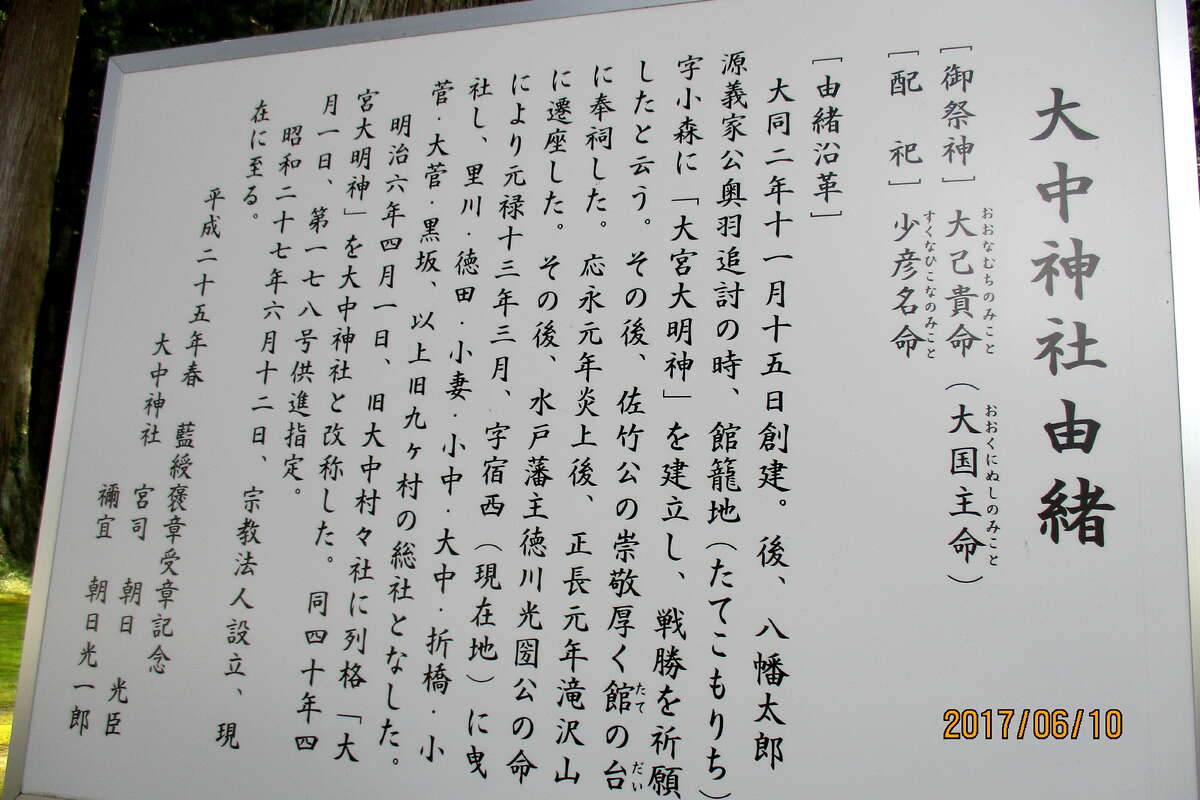 大中神社由緒
［御祭神］大己貴命（大国主命）
おおなむちのみこと
おおくにぬしのみこと
［配　祀］少彦名命
すくなひこなのみこと
［由緒沿革］
大同二年十一月十五日創建。後、八幡太郎
源義家公奥羽追討の時、館籠地（たてこもりち）
字小森に「大宮大明神」を建立し、戦勝を祈願
したと云う。その後、佐竹公の崇敬厚く館の台
たて
だい
に奉祠した。応永元年炎上後、正長元年滝沢山
に遷座した。その後、水戸藩主徳川光圀公の命
により元禄十三年三月、字宿西（現在地）に曳
社し、里川・徳田・小妻・小中・大中・折橋・小
菅・大菅・黒坂、以上旧九ヶ村の総社となした。
明治六年四月一日、旧大中村々社に列格「大
宮大明神」を大中神社と改称した。同四十年四
月一日、第一七八号供進指定。
昭和二十七年六月十二日、宗教法人設立、現
在に至る。
平成二十五年春　藍綬褒章受章記念
大中神社　宮司　朝日　光臣
禰宜　朝日光一郎
2017/06/10